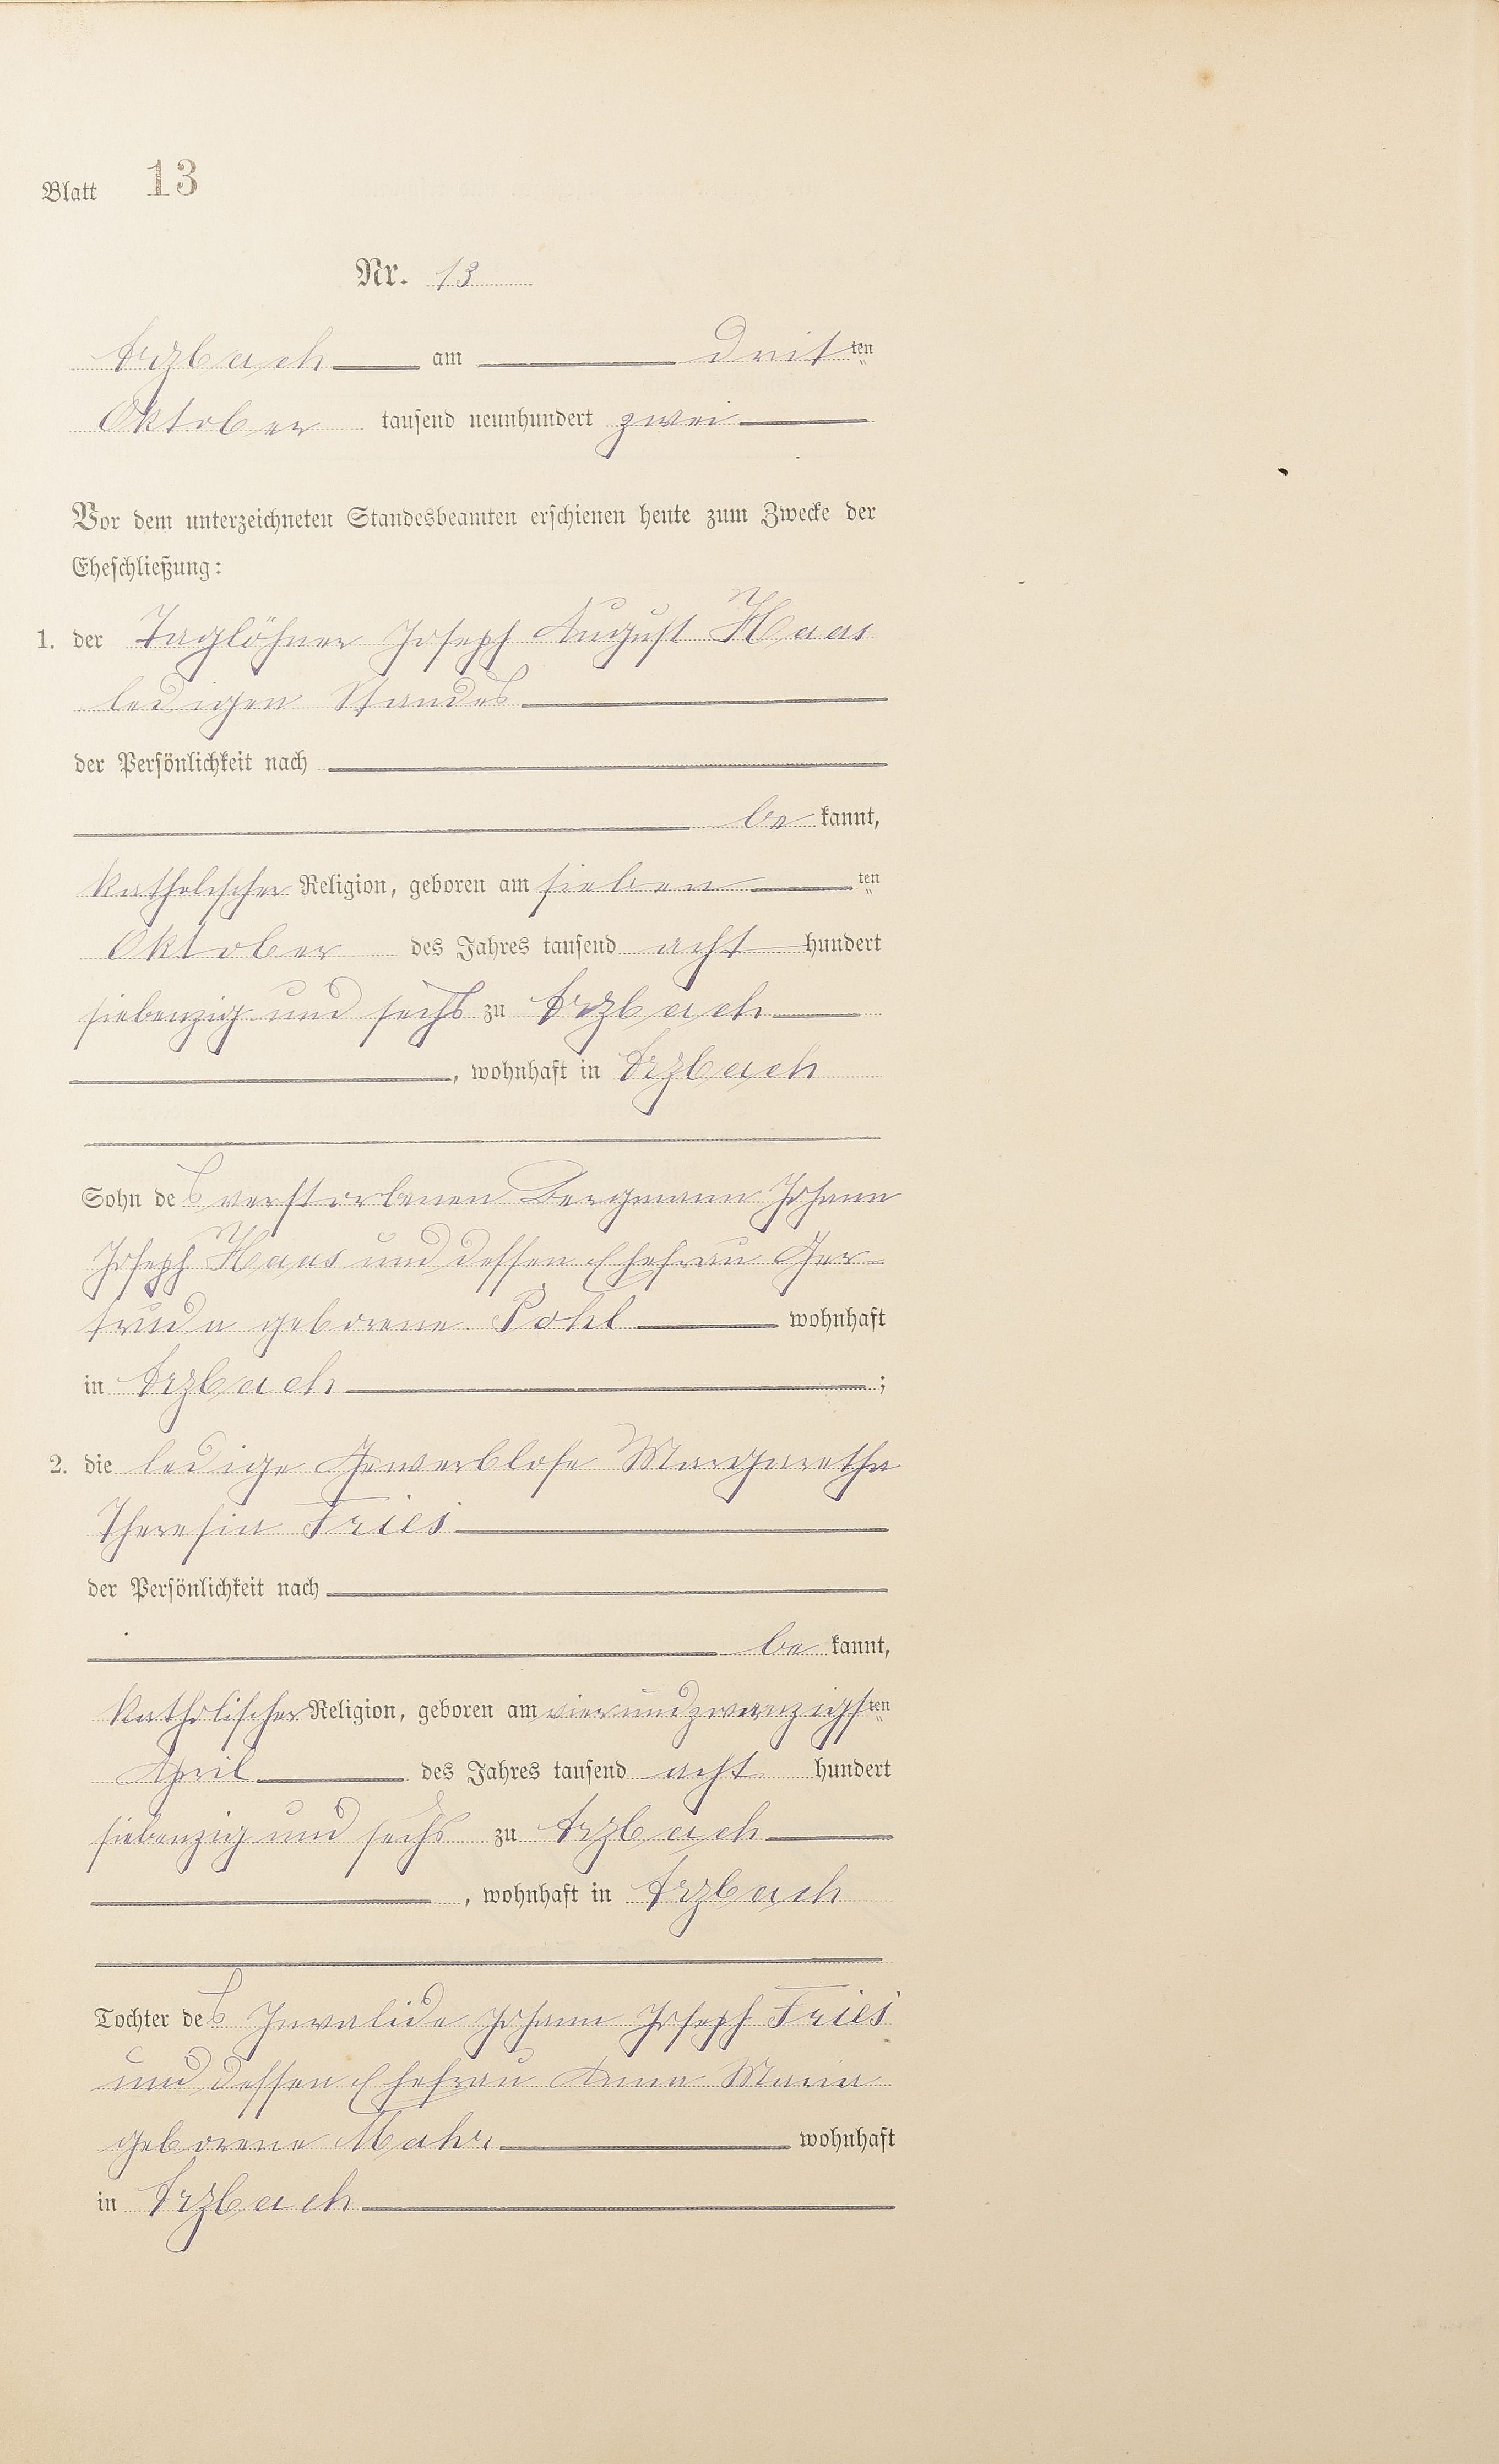 Blatt 13
Nr. 13
Arzbach am dritten
Oktober tausend neunhundert zwei
Vor dem unterzeichneten Standesbeamten erschienen heute zum Zwecke der
Eheschließung:
1. der Taglöhner Joseph August Haas
ledigen Standes
der Persönlichkeit nach
bekannt,
katholischer Religion, geboren am siebenten
Oktober des Jahres tausend acht hundert
siebenzig und sechs zu Arzbach
, wohnhaft in Arzbach
Sohn des verstorbenen Bergmann Johann
Joseph Haas und dessen Ehefrau Ger-
truda geborene Pohl wohnhaft
in Arzbach ;
2. die ledige Gewerblose Margaretha
Theresia Fries
der Persönlichkeit nach
bekannt,
katholischer Religion, geboren am vierundzwanzigsten
April des Jahres tausend acht hundert
siebenzig und sechs zu Arzbach
, wohnhaft in Arzbach
Tochter des Invalide Johann Joseph Fries
und dessen Ehefrau Anna Maria
geborene wohnhaft
in Arzbach